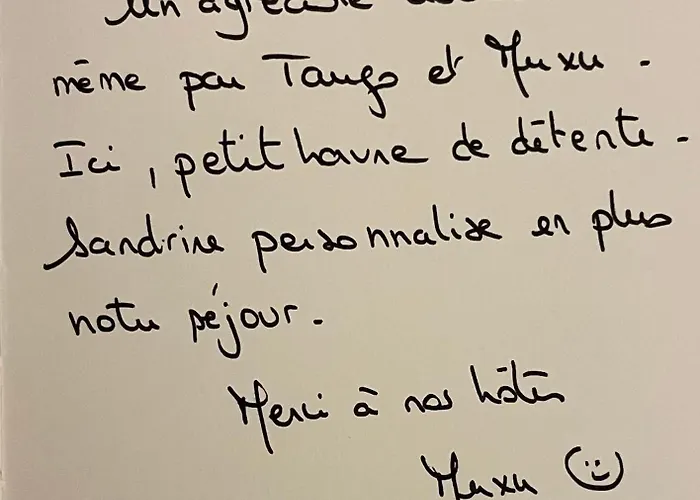 Un agréable
même par Tango et Muxu.
Ici, petit havre de détente.
Sandrine personnalise en plus
notre séjour.
Merci à nos hôtes
Muxu